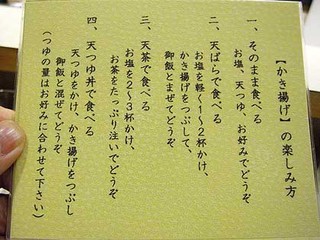 【かき揚げ】の楽しみ方
一、そのまま食べる
お塩、天つゆ、お好みでどうぞ
二、天ばらで食べる
お塩を軽く1～2杯かけ、
かき揚げをつぶして、
御飯とまぜてどうぞ
三、天茶で食べる
お塩を2～3杯かけ、
お茶をたっぷり注いでどうぞ
四、天つゆ丼で食べる
天つゆをかけ、かき揚げをつぶし
御飯と混ぜてどうぞ
（つゆの量はお好みに合わせて下さい）